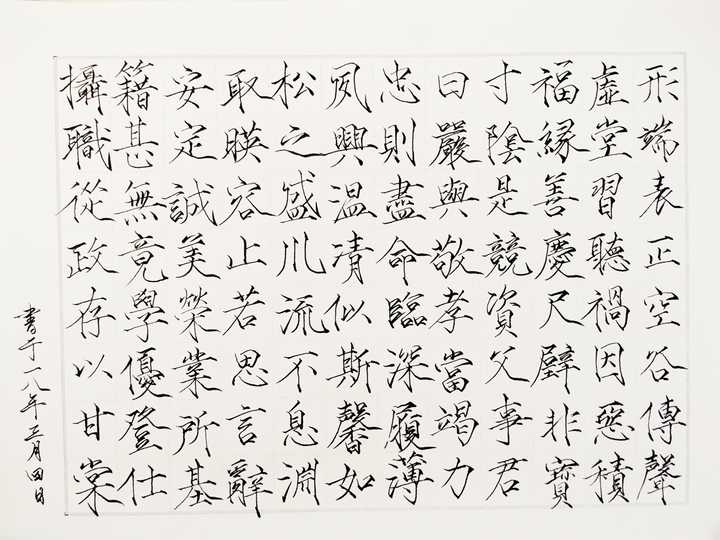 形端表正空谷傳聲
虛堂習聽禍因惡積
福緣善慶尺璧非寶
寸陰是競資父事君
曰嚴與敬孝當竭力
忠則盡命臨深履薄
夙興溫凊似斯馨如
松之盛川流不息淵
取暎容止若思言辭
安定誠美榮業所基
籍甚無竟學優登仕
攝職從政存以甘棠
書于一八年三月四日